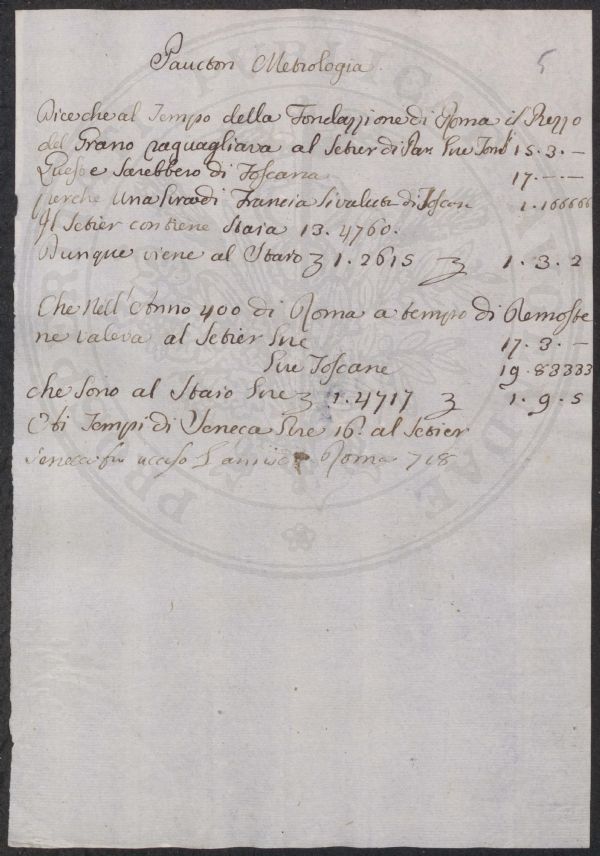 Paucton Metrologia
5
Dice che al Tempo della Fondazzione di Roma il Prezzo
del Grano raguagliava al Setier di Par. Lire Torn 15.3.—
Queste Sarebbero di Toscana 17.——
perche Una Lira di Francia Si valuta di Toscan 1.166666
Il Setier contiene Staia 13.4760.
Dunque viene al Staio 1.2615 1.3.2
Che nell'Anno 400 di Roma a tempo di Demoste
ne valeva al Setier Lire 17.3.—
Lire Toscane 19.83333
che Sono al Staio Lire 1.4717 1.9.5
Tempi di Seneca Lire 16. al Setier
Seneca fu ucciso Roma 718